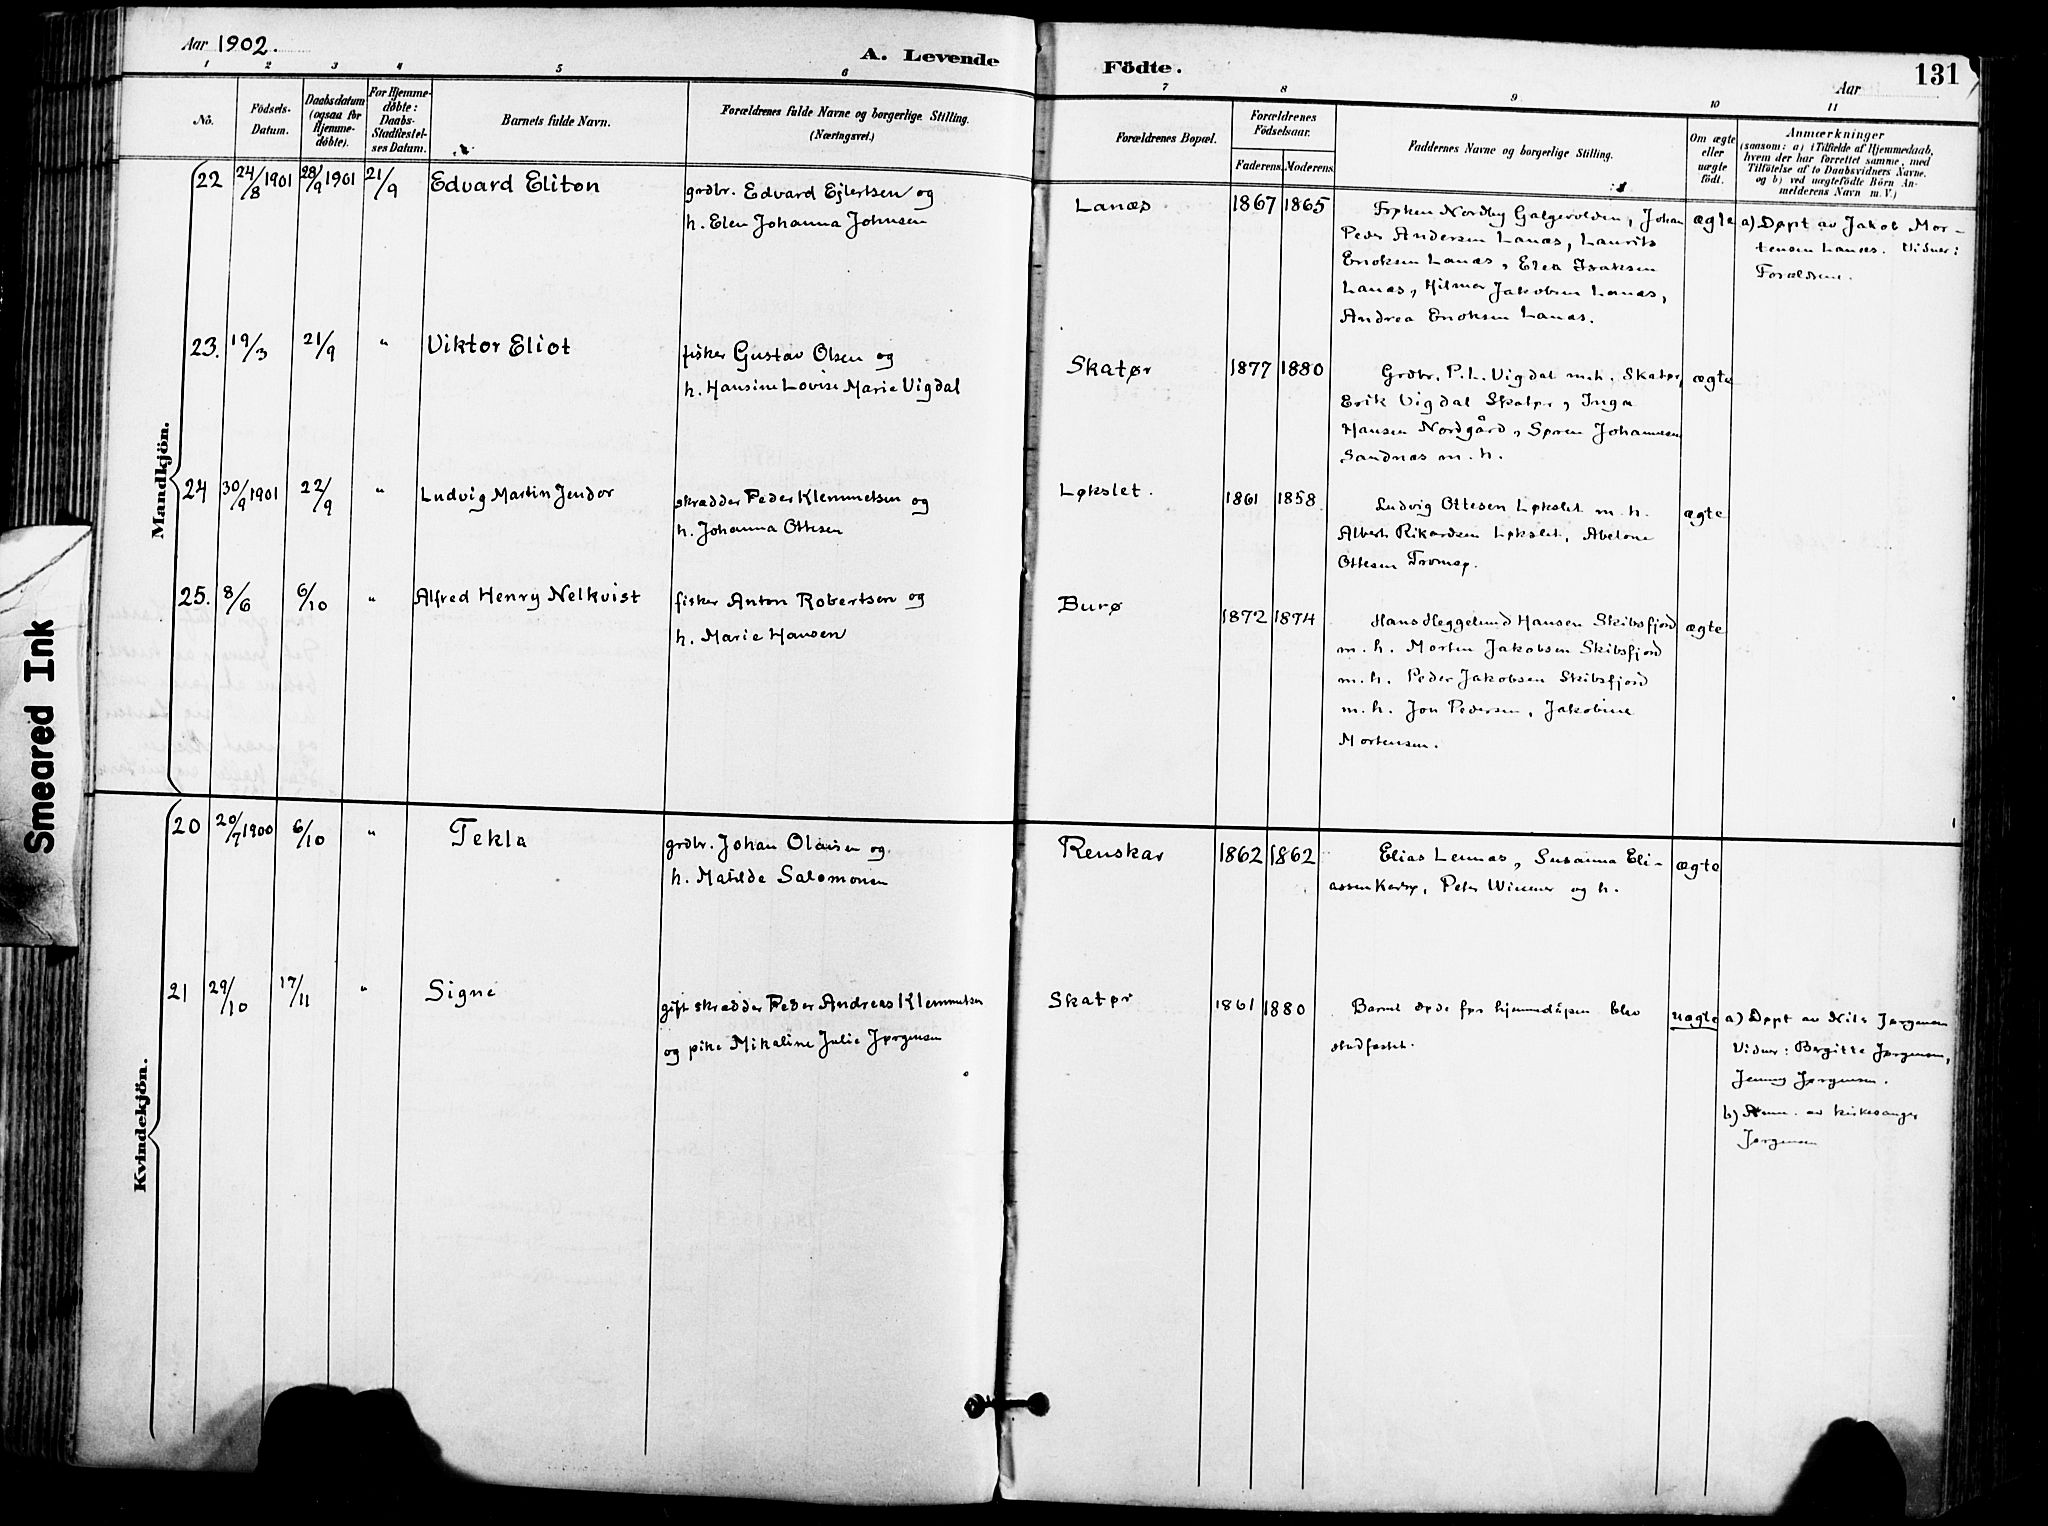 Aar 1902.
A. Levende Födte.
131
Aar
1 2 3 4 5 6 7 8 9 10 11
Nô.
Födsels-
Datum.
Daabsdatum
(ogsaa for
Hjemme-
döbte).
For Hjemme-
döbte:
Daabs-
Stadfæstel-
ses Datum.
Barnets fulde Navn.
Forældrenes fulde Navne og borgerlige Stilling.
(Næringsvei.)
Forældrenes Bopæl.
Forældrenes
Födselsaar.
Faderens. Moderens.
Faddernes Navne og borgerlige Stilling.
Om ægte
eller
uægte
födt.
Anmærkninger
(saasom: a) i Tilfælde af Hjemmedaab,
hvem der har forrettet samme, med
Tilföielse af to Daabsvidners Navne.
og b) ved uægtefödte Börn An-
melderens Navn m. V.)
Mandkjön.
22 24/8 1901 28/9 1901 21/9 Edvard Eliton
grdbr. Edvard Ejlertsen og
h. Elen Johanna Johnsen
Lanæs 1867 1865
Frøken Nordby Galgevolden, Johan
Peder Andersen Lanæs, Laurits
Enoksen Lanæs, Elea Isaksen
Lanæs, Hilmar Jakobsen Lanæs,
Andrea Enoksen Lanæs.
ægte
a) Døpt av Jakob Mor-
tensen Lanæs. Vidner:
Forældrene.
23. 19/3 21/9 " Viktor Eliot
fisker Gustav Olsen og
h. Hansine Lovise Marie Vigdal
Skatør 1877 1880
Grdbr. P. L. Vigdal m.h. Skatør,
Erik Vigdal Skatør, Inga
Hansen Nordgård, Søren Johannesen
Sandnæs m. h.
ægte
24 30/9 1901 22/9 " Ludvig Martin Jendor
skrædder Peder Klemmetsen og
h. Johanna Ottesen
Løkslet. 1861 1858
Ludvig Ottesen Løkslet m. h.
Albert Rikardsen Løkslet, Abelone
Ottesen Tromsø.
ægte
25. 8/6 6/10 " Alfred Henry Nelkvist
fisker Anton Robertsen og
h. Marie Hansen
Burø 1872 1874
Hans Heggelund Hansen Skibsfjord
m. h. Morten Jakobsen Skibsfjord
m. h. Peder Jakobsen Skibsfjord
m. h. Jon Pedersen, Jakobine
Mortensen.
ægte
Kvindekjön.
20 20/7 1900 6/10 " Tekla
grdbr. Johan Olaisen og
h. Matilde Salomonsen
Renskar 1862 1862
Elias Lennas, Susanna Eli-
assen Karlsø, Peter Wimmer og h.
ægte
21 29/10 17/11 " Signe
gift skrædder Peder Andreas Klemmetsen
og pike Mikaline Julie Jørgensen
Skatør 1861 1880
Barnet døde før hjemmedåpen blev
stadfæstet.
uægte
a) Døpt av Nils Jørgensen
Vidner: Bergitte Jørgensen,
Jenny Jørgensen.
b) Anm. av kirkesanger
Jørgensen
Smeared Ink